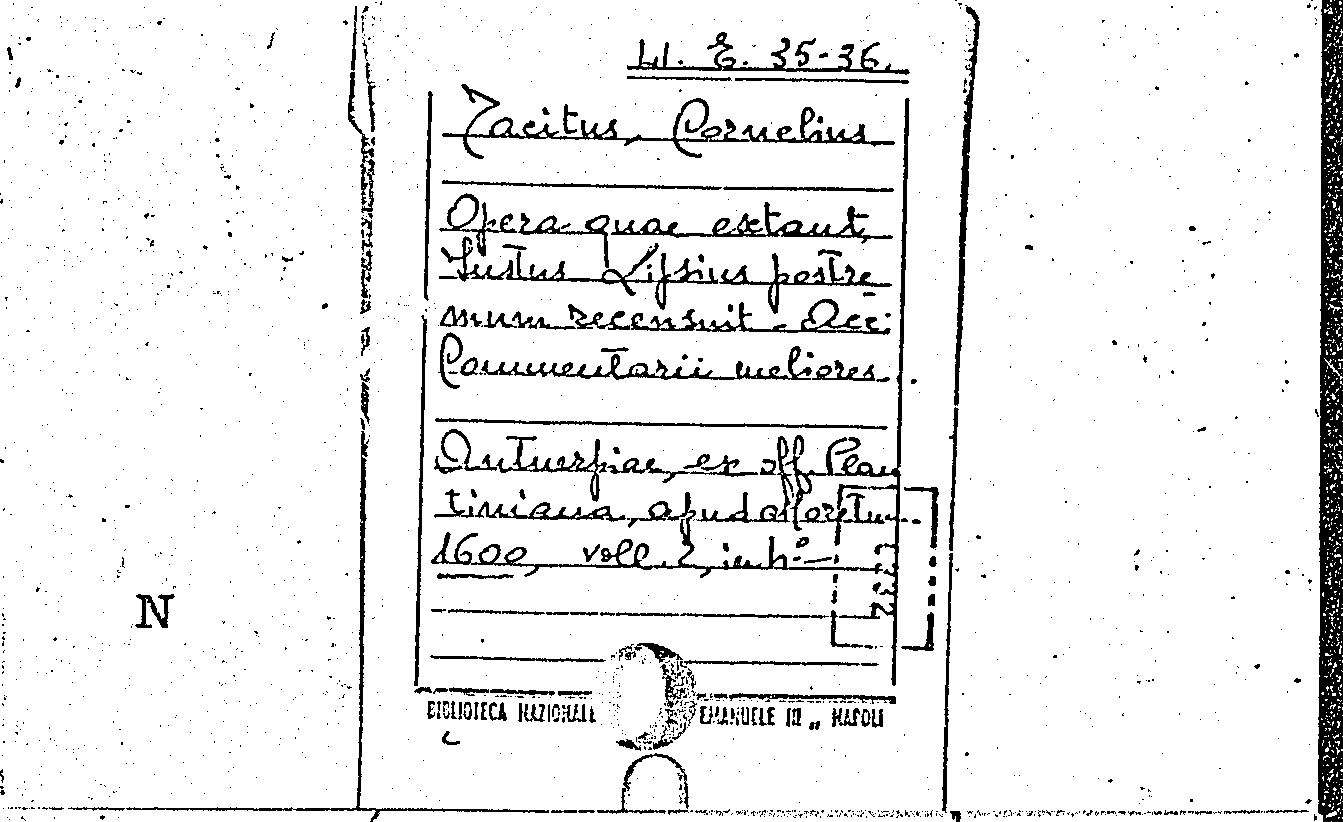 LI. E. 35-36.
Tacitus, Cornelius
Opera quae extant,
Iustus Lipsius postre
mum recensuit. Acc:
Commentarii meliores.
Antuerpiae, ex off. Plan
tiniana, apud Moretum
1600, voll. 2, in h:º
N
BIBLIOTECA NAZIONALE EMANUELE III „ NAPOLI